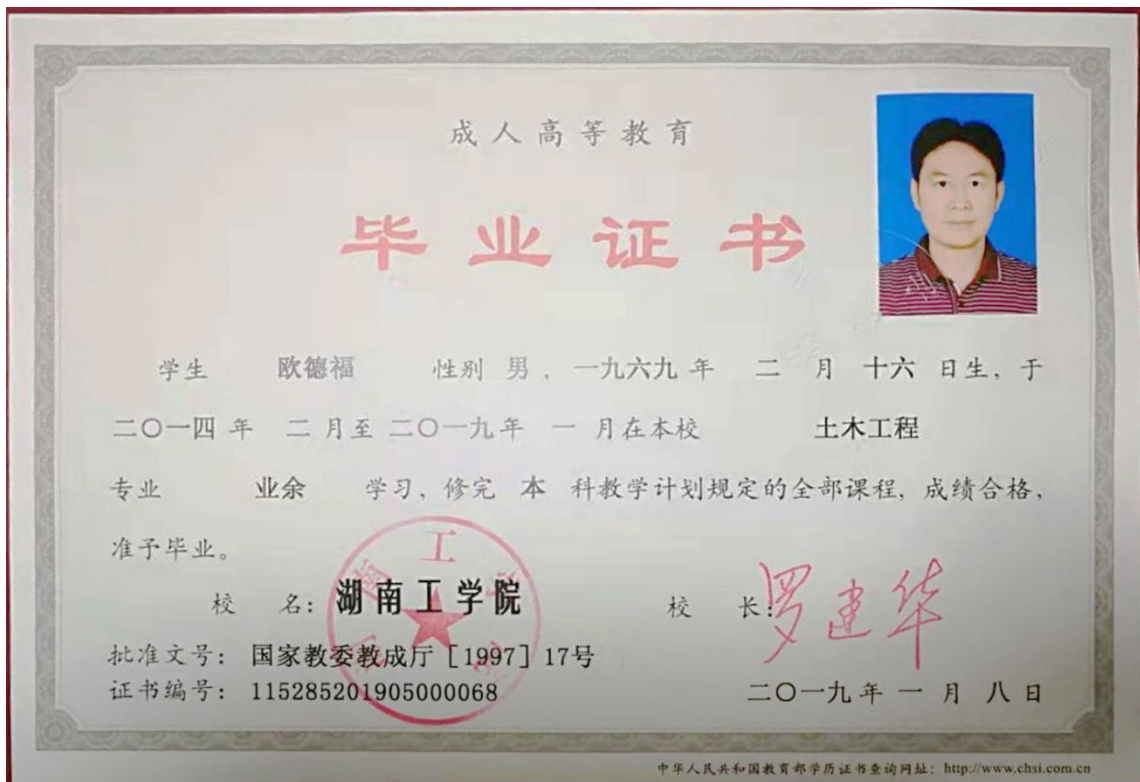 成人高等教育
毕业证书
学生 欧德福 性别 男 ，一九六九 年 二 月 十六 日生，于
二〇一四 年 二 月至 二〇一九年 一 月在本校 土木工程
专业 业余 学习，修完 本 科教学计划规定的全部课程，成绩合格，
准予毕业。
校 名：湖南工学院 校 长：罗建华
批准文号：国家教委教成厅［1997］17号
证书编号：115285201905000068 二〇一九 年 一 月 八 日
中华人民共和国教育部学历证书查询网址：http://www.chsi.com.cn